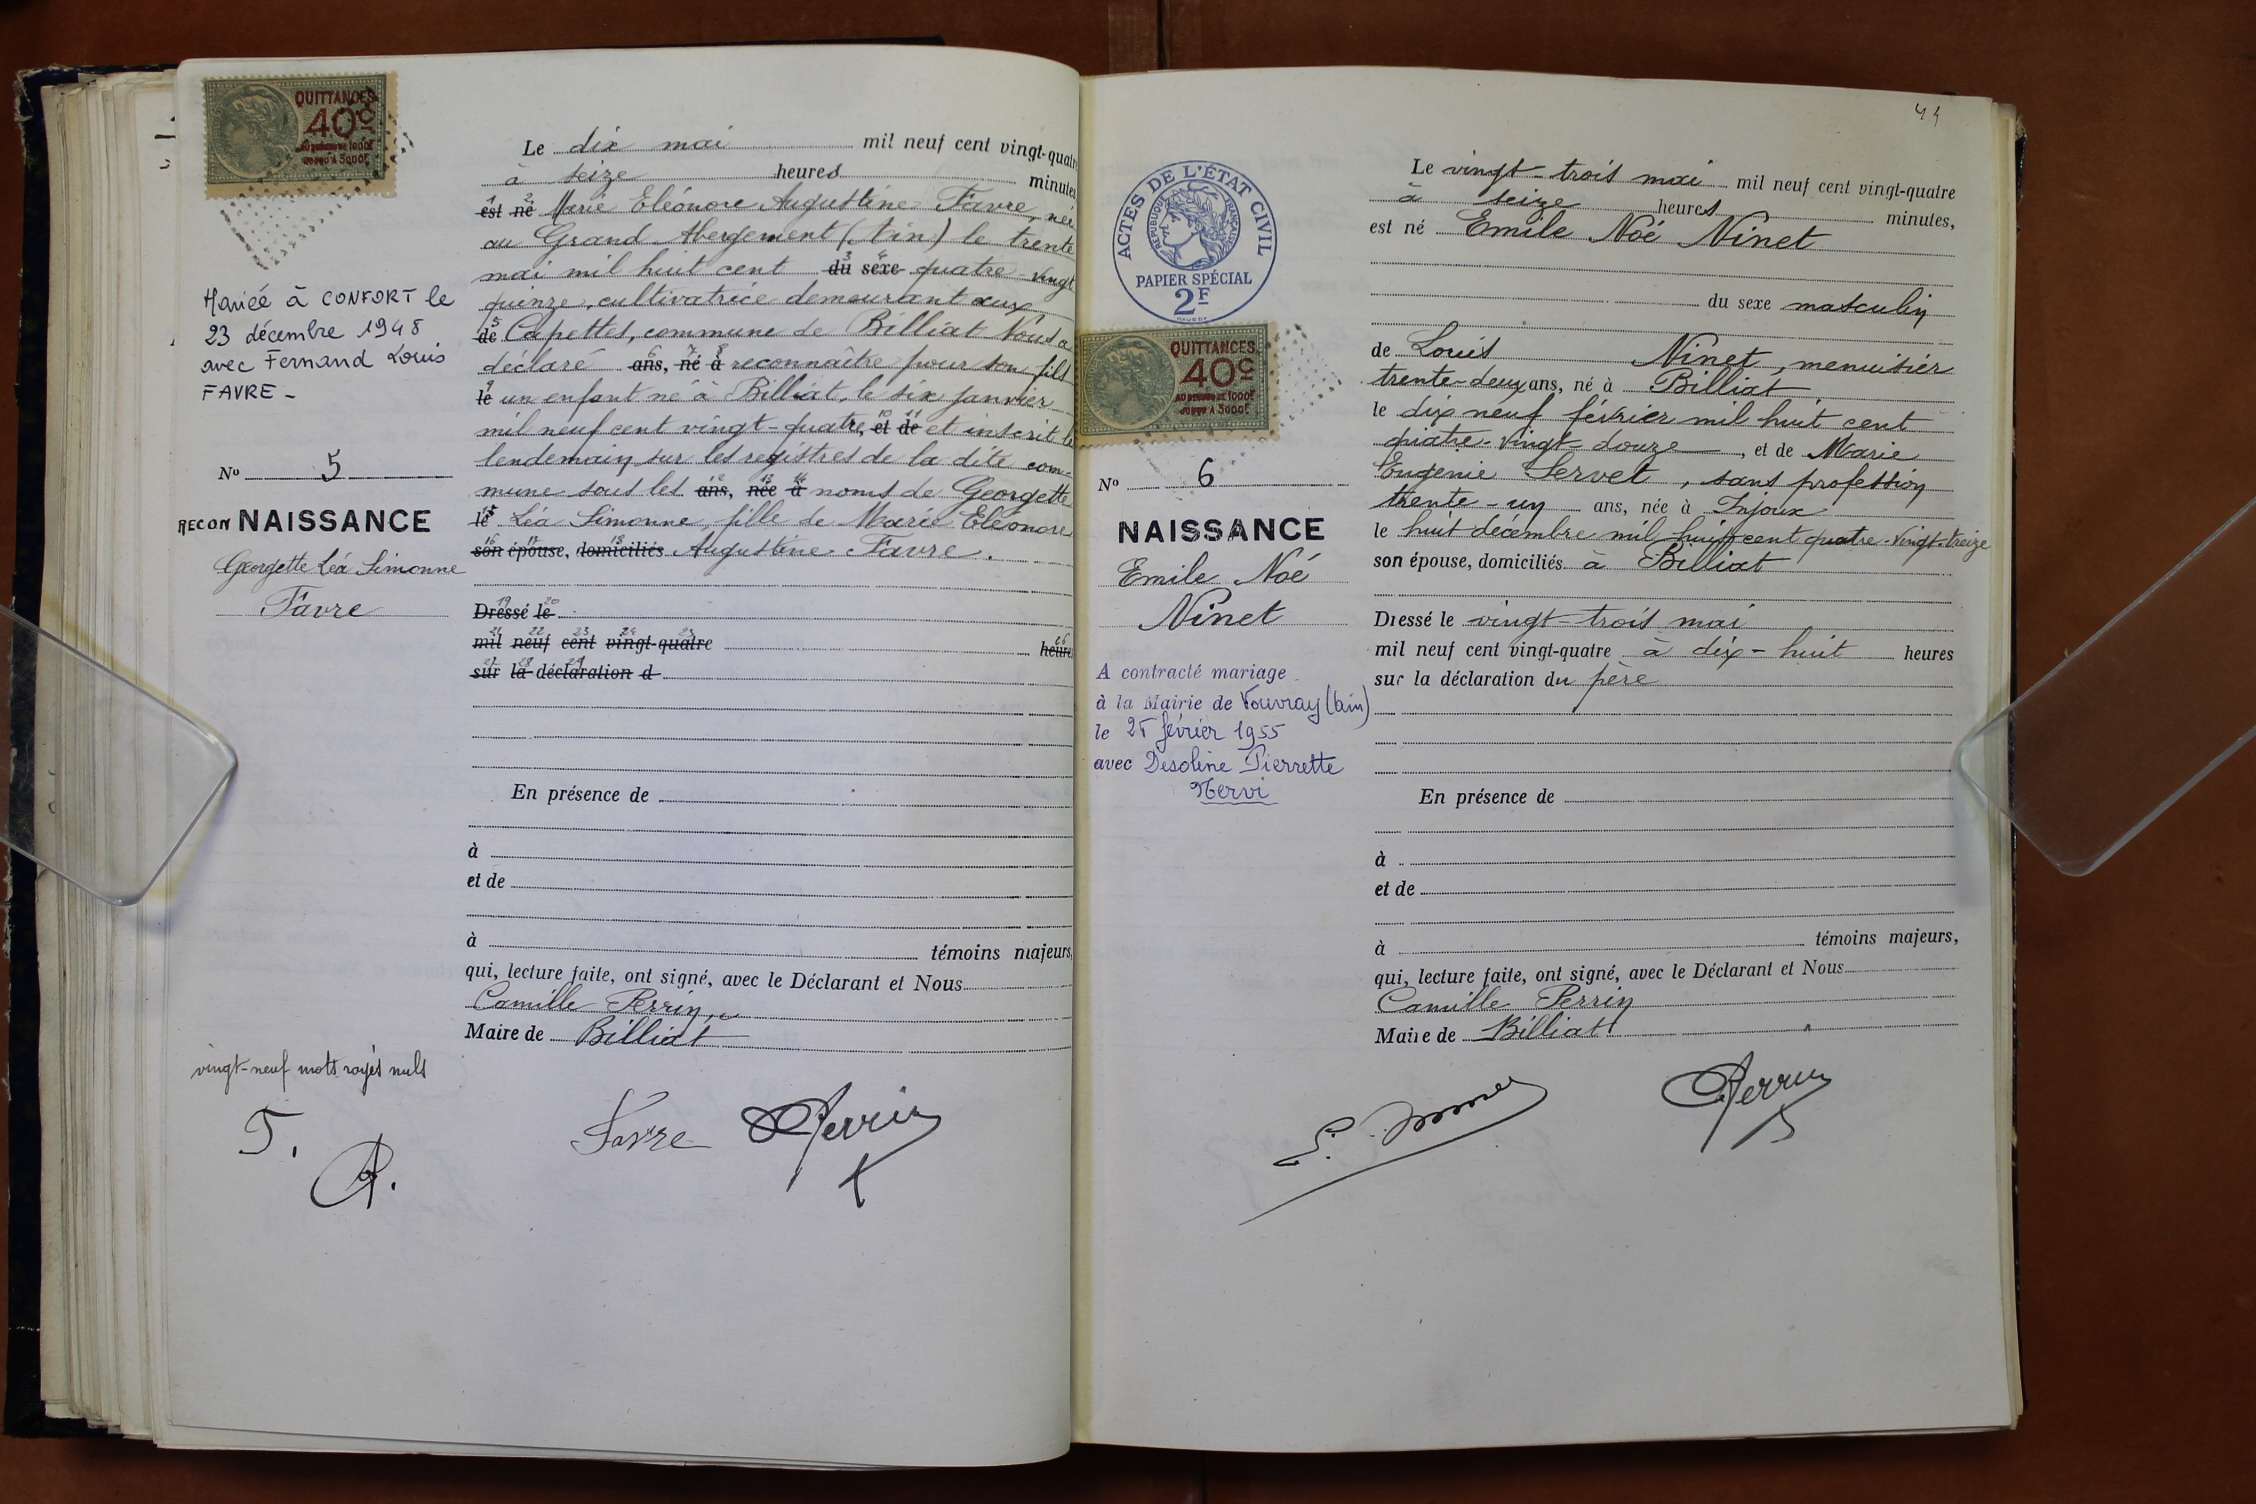 QUITTANCES
40c
AU DESSUS DE 1000F
JUSQU'A 3000F
Mariée à CONFORT le
23 décembre 1948
avec Fernand Louis
FAVRE -
No 5
RECON NAISSANCE
Georgette Léa Simonne
Favre
vingt-neuf mots rayés nuls
F.
P.
Le dix mai mil neuf cent vingt-quatre
à seize heures minutes
1 2 est né Marie Eléonore Augustine Favre, née
au Grand Abergement (Ain) le trente
mai mil huit cent 3 4 du sexe quatre-vingt
quinze, cultivatrice demeurant aux
5 de Capettes, commune de Billiat Nous a
déclaré 6 7 8 ans, né à reconnaître pour son fils
9 le un enfant né à Billiat, le six janvier
mil neuf cent vingt-quatre, 10 11 et de et inscrit le
lendemain sur les registres de la dite com-
mune sous les 12 13 14 ans, née à noms de Georgette
15 le Léa Simonne, fille de Marie Eléonore
16 17 18 son épouse, domiciliés Augustine Favre.
19 20 Dressé le
21 22 23 24 25 26 mil neuf cent vingt-quatre heures
27 28 29 sur la déclaration d
En présence de
à
et de
à témoins majeurs,
qui, lecture faite, ont signé, avec le Déclarant et Nous
Camille Perrin,
Maire de Billiat
Favre Perrin
44
ACTES DE L'ÉTAT CIVIL
RÉPUBLIQUE FRANÇAISE
PAPIER SPÉCIAL
2F
QUITTANCES
40c
AU DESSUS DE 1000F
JUSQU'A 3000F
No 6
NAISSANCE
Emile Noé
Ninet
A contracté mariage
à la Mairie de Vouvray (Ain)
le 25 février 1955
avec Desoline Pierrette
Nervi
Le vingt-trois mai mil neuf cent vingt-quatre
à seize heures minutes,
est né Emile Noé Ninet
du sexe masculin
de Louis Ninet, menuisier
trente-deux ans, né à Billiat
le dix neuf février mil huit cent
quatre-vingt-douze, et de Marie
Eugenie Servet, sans profession
trente-un ans, née à Injoux
le huit décembre mil huit cent quatre-vingt-treize
son épouse, domiciliés à Billiat
Dressé le vingt-trois mai
mil neuf cent vingt-quatre à dix-huit heures
sur la déclaration du père
En présence de
à
et de
à témoins majeurs,
qui, lecture faite, ont signé, avec le Déclarant et Nous
Camille Perrin
Maire de Billiat
Perrin